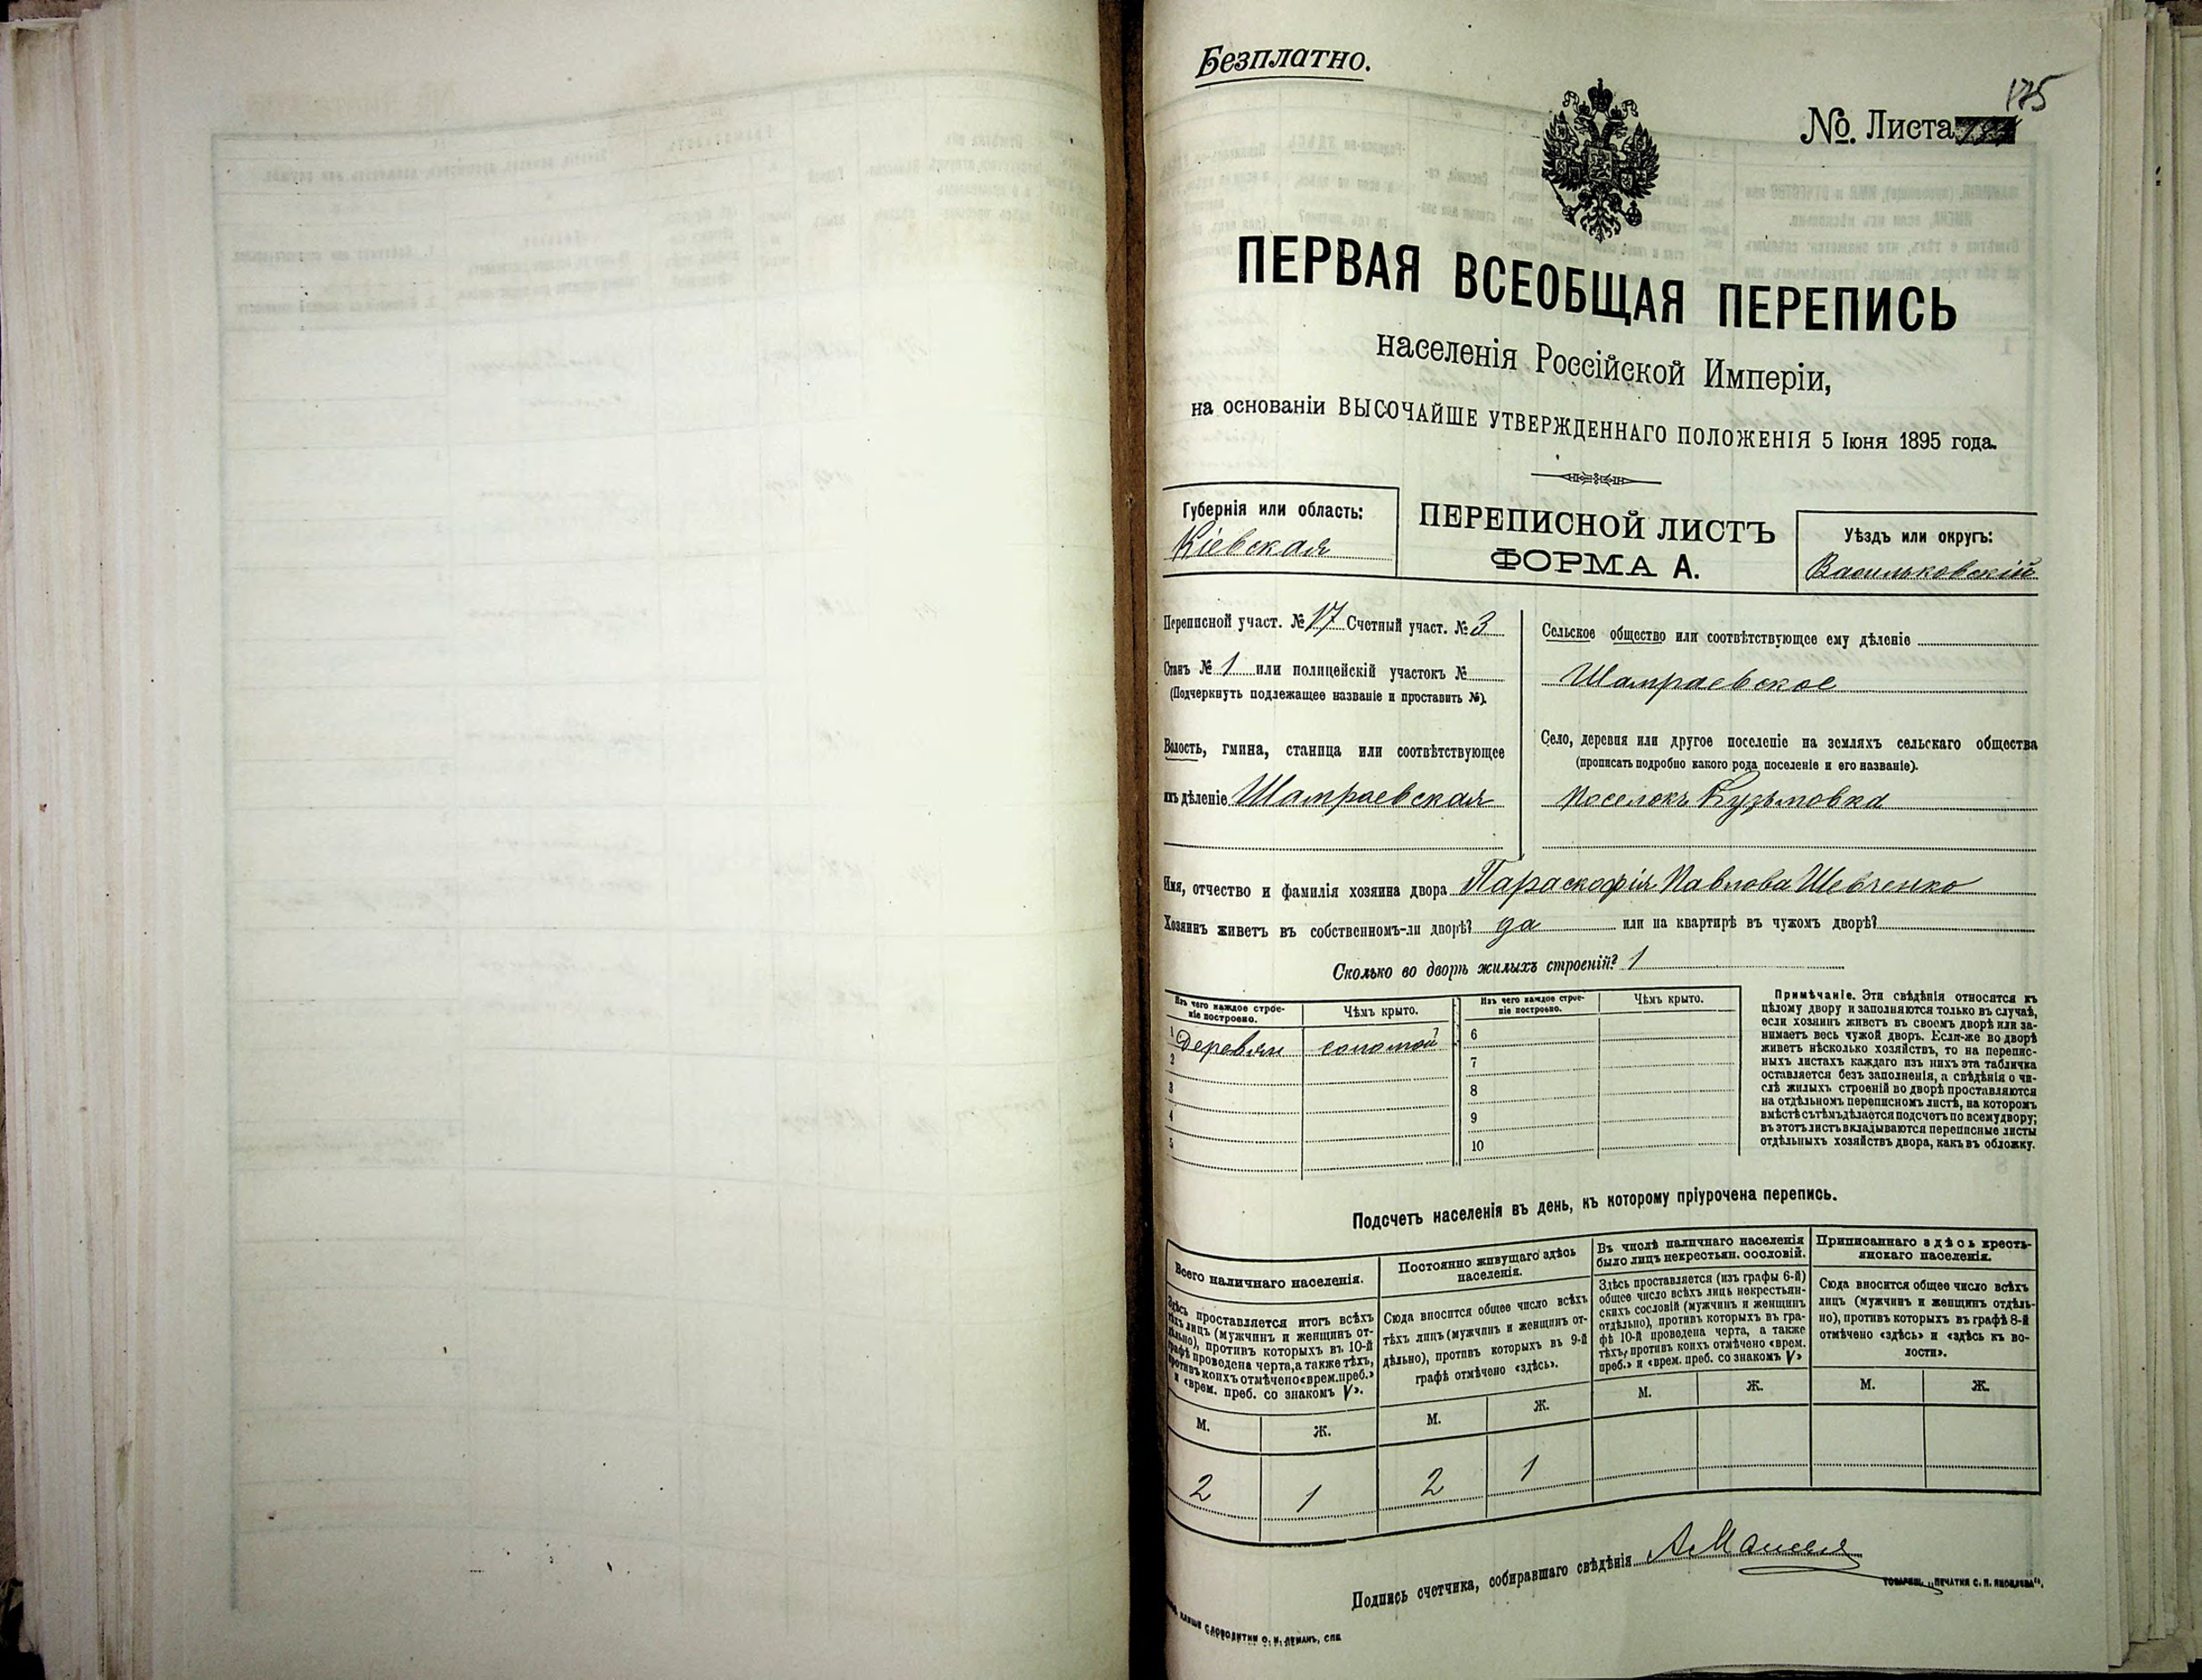 Безплатно.
175
№. Листа
ПЕРВАЯ ВСЕОБЩАЯ ПЕРЕПИСЬ
населенія Россійской Имперіи,
на основаніи ВЫСОЧАЙШЕ УТВЕРЖДЕННАГО ПОЛОЖЕНІЯ 5 Іюня 1895 года.
Губернія или область:
Кіевская
ПЕРЕПИСНОЙ ЛИСТЪ
ФОРМА А.
Уѣздъ или округъ:
Васильковскій
Переписной участ. № 17 Счетный участ. № 3
Станъ № 1 или полицейскій участокъ №
(Подчеркнуть подлежащее названіе и проставить №).
Волость, гмина, станица или соотвѣтствующее
имъ дѣленіе Шамраевская
Сельское общество или соотвѣтствующее ему дѣленіе
Шамраевское
Село, деревня или другое поселеніе на земляхъ сельскаго общества
(прописать подробно какого рода поселеніе и его названіе).
поселокъ Кузьмовка
Имя, отчество и фамилія хозяина двора Параскофія Павлова Шевченко
Хозяинъ живетъ въ собственномъ-ли дворѣ? да или на квартирѣ въ чужомъ дворѣ?
Сколько во дворѣ жилыхъ строеній? 1
Изъ чего каждое строе-
ніе построено.
Чѣмъ крыто.
1 Деревян соломой
2
3
4
5
Изъ чего каждое строе-
ніе построено.
Чѣмъ крыто.
6
7
8
9
10
Примѣчаніе. Эти свѣдѣнія относятся къ
цѣлому двору и заполняются только въ случаѣ,
если хозяинъ живетъ въ своемъ дворѣ или за-
нимаетъ весь чужой дворъ. Если-же во дворѣ
живетъ нѣсколько хозяйствъ, то на перепис-
ныхъ листахъ каждаго изъ нихъ эта табличка
оставляется безъ заполненія, а свѣдѣнія о чи-
слѣ жилыхъ строеній во дворѣ проставляются
на отдѣльномъ переписномъ листѣ, на которомъ
вмѣстѣ съ тѣмъ дѣлается подсчетъ по всему двору;
въ этотъ листъ вкладываются переписные листы
отдѣльныхъ хозяйствъ двора, какъ въ обложку.
Подсчетъ населенія въ день, къ которому пріурочена перепись.
Всего наличнаго населенія.
Здѣсь проставляется итогъ всѣхъ
тѣхъ лицъ (мужчинъ и женщинъ от-
дѣльно), противъ которыхъ въ 10-й
графѣ проведена черта, а также тѣхъ,
противъ коихъ отмѣчено «врем. преб.»
и «врем. преб. со знакомъ V».
М. Ж.
2 1
Постоянно живущаго здѣсь
населенія.
Сюда вносится общее число всѣхъ
тѣхъ лицъ (мужчинъ и женщинъ от-
дѣльно), противъ которыхъ въ 9-й
графѣ отмѣчено «здѣсь».
М. Ж.
2 1
Въ числѣ наличнаго населенія
было лицъ некрестьян. сословій.
Здѣсь проставляется (изъ графы 6-й)
общее число всѣхъ лицъ некрестьян-
скихъ сословій (мужчинъ и женщинъ
отдѣльно), противъ которыхъ въ гра-
фѣ 10-й проведена черта, а также
тѣхъ, противъ коихъ отмѣчено «врем.
преб.» и «врем. преб. со знакомъ V»
М. Ж.
Приписаннаго здѣсь кресть-
янскаго населенія.
Сюда вносится общее число всѣхъ
лицъ (мужчинъ и женщинъ отдѣль-
но), противъ которыхъ въ графѣ 8-й
отмѣчено «здѣсь» и «здѣсь къ во-
лости».
М. Ж.
Подпись счетчика, собиравшаго свѣдѣнія
ТОВАРИЩ. „ПЕЧАТНЯ С. П. ЯКОВЛЕВА“.
СЛОВОЛИТНИ О. И. ЛЕМАНЪ, СПБ